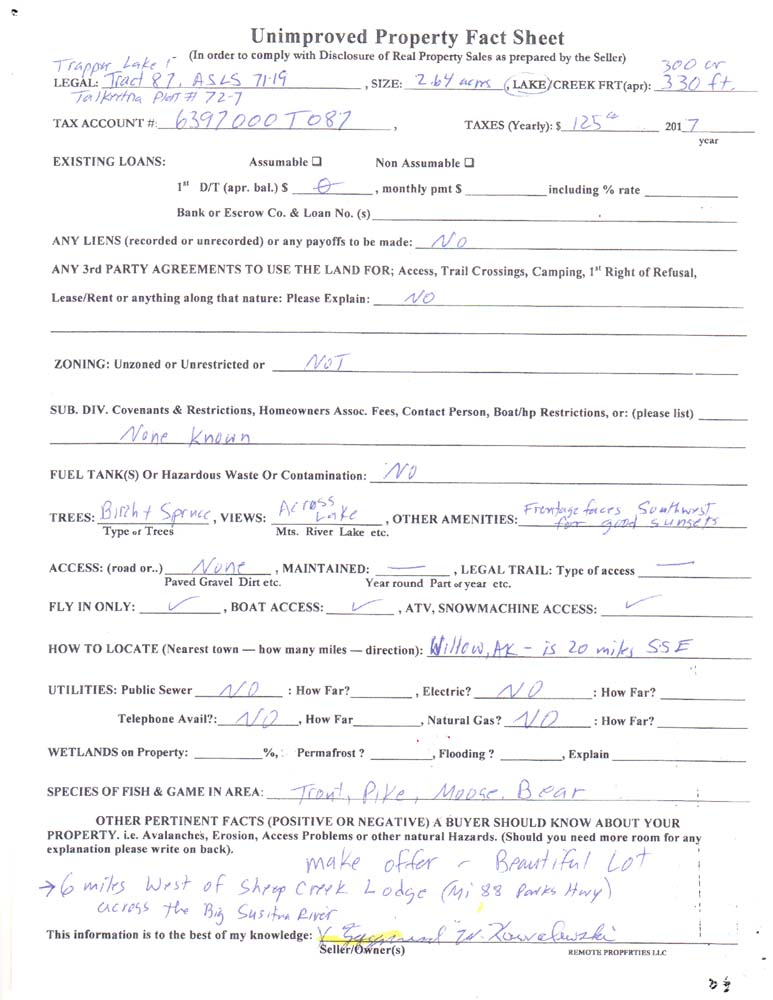 Unimproved Property Fact Sheet
(In order to comply with Disclosure of Real Property Sales as prepared by the Seller)
Trapper Lake 300 or
LEGAL: Tract 87, ASLS 71-19, SIZE: 2.64 acres, LAKE/CREEK FRT(apr): 330 ft.
Talkeetna Plat # 72-7
TAX ACCOUNT #: 6397000T087, TAXES (Yearly): $ 125 00 2017
year
EXISTING LOANS: Assumable ☐ Non Assumable ☐
1st D/T (apr. bal.) $ 0, monthly pmt $ ________ including % rate ________
Bank or Escrow Co. & Loan No. (s) ________
ANY LIENS (recorded or unrecorded) or any payoffs to be made: NO
ANY 3rd PARTY AGREEMENTS TO USE THE LAND FOR; Access, Trail Crossings, Camping, 1st Right of Refusal,
Lease/Rent or anything along that nature: Please Explain: NO
ZONING: Unzoned or Unrestricted or NOT
SUB. DIV. Covenants & Restrictions, Homeowners Assoc. Fees, Contact Person, Boat/hp Restrictions, or: (please list) ________
None Known
FUEL TANK(S) Or Hazardous Waste Or Contamination: NO
TREES: Birch + Spruce, VIEWS: Across Lake, OTHER AMENITIES: Frontage faces Southwest for good sunsets
Type of Trees Mts. River Lake etc.
ACCESS: (road or..) None, MAINTAINED: —, LEGAL TRAIL: Type of access —
Paved Gravel Dirt etc. Year round Part of year etc.
FLY IN ONLY: ✓, BOAT ACCESS: ✓, ATV, SNOWMACHINE ACCESS: ✓
HOW TO LOCATE (Nearest town — how many miles — direction): Willow, AK - is 20 miles SSE
UTILITIES: Public Sewer NO : How Far? ________, Electric? NO : How Far? ________
Telephone Avail?: NO, How Far ________, Natural Gas? NO : How Far? ________
WETLANDS on Property: ________%, : Permafrost ? ________, Flooding ? ________, Explain ________
SPECIES OF FISH & GAME IN AREA: Trout, Pike, Moose, Bear
OTHER PERTINENT FACTS (POSITIVE OR NEGATIVE) A BUYER SHOULD KNOW ABOUT YOUR
PROPERTY. i.e. Avalanches, Erosion, Access Problems or other natural Hazards. (Should you need more room for any
explanation please write on back).
make offer - Beautiful Lot
→ 6 miles West of Sheep Creek Lodge (Mi 88 Parks Hwy)
across the Big Susitna River
This information is to the best of my knowledge: X W. Kowalewski
Seller/Owner(s) REMOTE PROPERTIES LLC